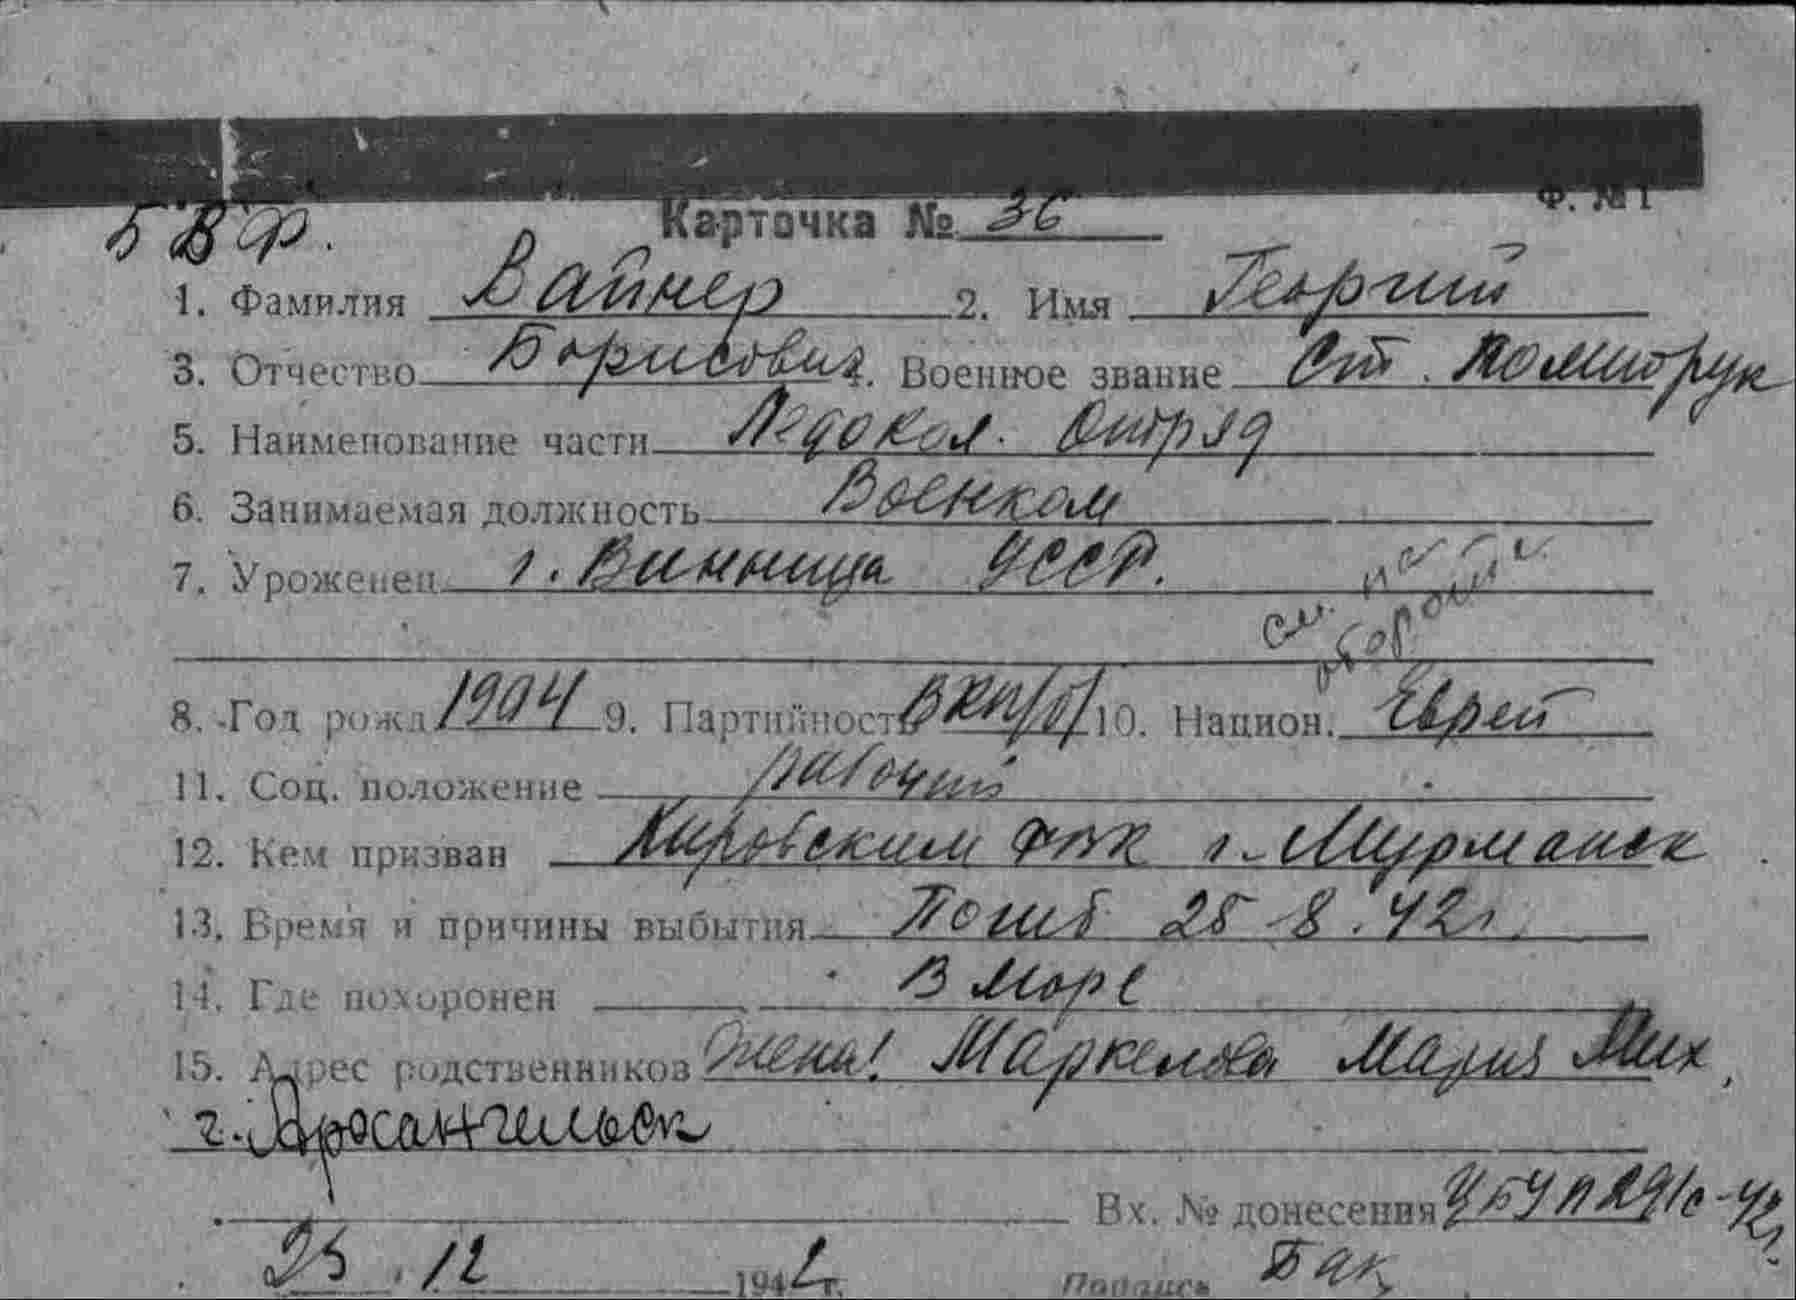 Ф. № 1
БВФ.
Карточка № 36
1. Фамилия Вайнер 2. Имя Георгий
3. Отчество Борисович 4. Военное звание Ст. Политрук
5. Наименование части Ледокол. Отряд
6. Занимаемая должность Военком
7. Уроженец г. Винница УССР.
См. на
обороте
8. Год рожд 1904 9. Партийность ВКП/б/ 10. Национ. Еврей
11. Соц. положение рабочий
12. Кем призван Кировским РВК г. Мурманск
13. Время и причины выбытия Погиб 25-8.42г.
14. Где похоронен В море
15. Адрес родственников Жена: Маркелова Мария Мих,
г. Архангельск
Вх. № донесения ЦБУП 291с-42г.
25.12 1942 г. Подпись